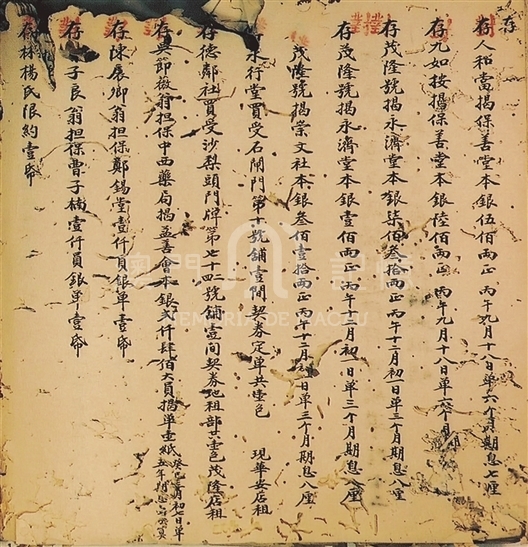 存
存人和當揭保善堂本銀伍佰両正 丙午九月十八日单六个月期息七厘
存九如按揭保善堂本銀陸佰両正 丙午九月十八日单六个月
存茂隆號揭永濟堂本銀柒佰叁拾両正 丙午十二月初一日单三个月期息八厘
存茂隆號揭永濟堂本銀壹佰両正 丙午十二月初一日单三个月期息八厘
茂隆號揭崇文社本銀叁佰壹拾両正 丙午十二月初一日单三个月期息八厘
永行堂買受石閘門第十號舖壹間契券定单共壹包 現華安店租
存德鄰社買受沙梨頭門牌第七十四號舖壹間契券地租部共壹包茂隆店租
存吳節薇翁担保中西藥局揭益善會本銀弍仟肆佰大員揭单壹紙 癸巳 月初七日单 五年期息
存陳席卿翁担保鄭錫堂壹仟員銀单壹帋
存 子良翁担保曹子 壹仟員銀单壹帋
存林楊氏限約壹帋
澳門記憶
MEMÓRIA DE MACAU